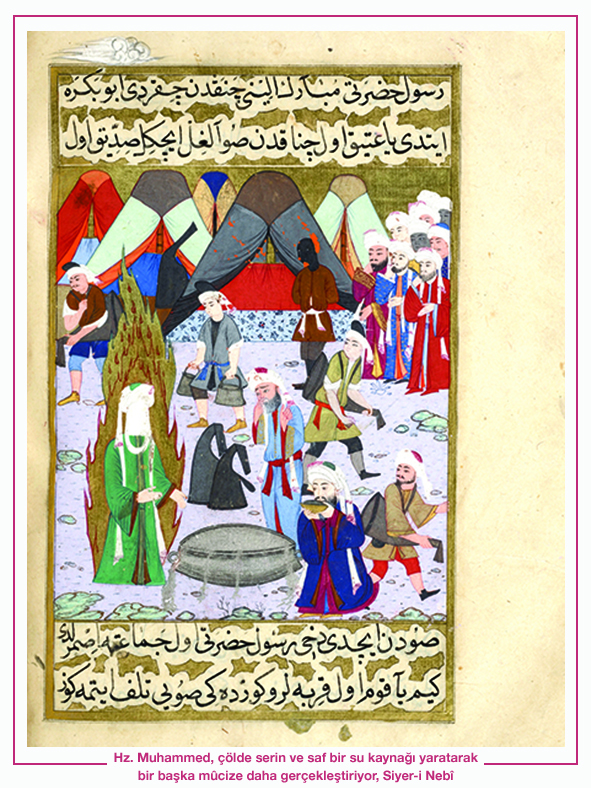 رسول حضرتی مبارك الینی چنقدن چقردی ابو بكره
ایتدی یا عتیق اول چناقدن صو آلغل ایچكل صدیق اول
صودن ایچدی دخی رسول حضرتی اول جماعته
كیم یا قوم اول قربه لرو كوزده كی صویی تلف ایتمه كوز
Hz. Muhammed, çölde serin ve saf bir su kaynağı yaratarak
bir başka mûcize daha gerçekleştiriyor, Siyer-i Nebî